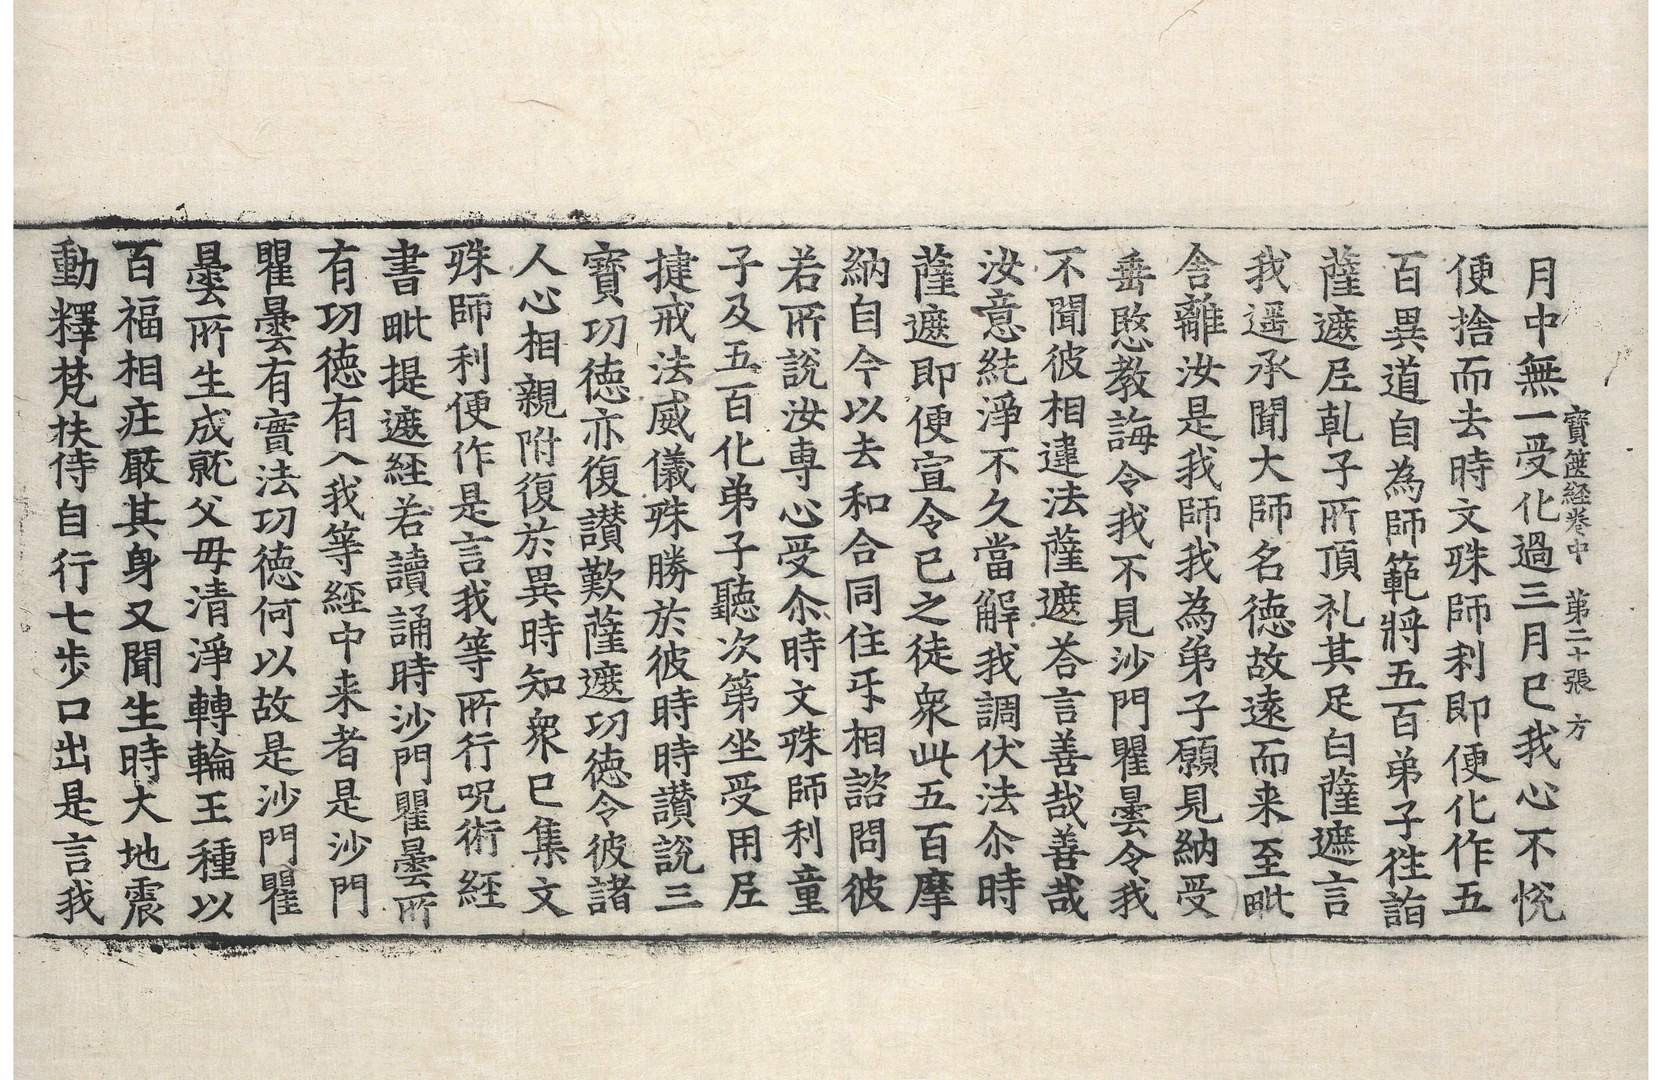 寶篋経卷中 第二十張 方
月中無一受化過三月已我心不恱
便捨而去時文殊師利即便化作五
百異道自為師範將五百弟子徃詣
薩遮𡰱乹子所頂礼其足白薩遮言
我遥承聞大師名德故逺而来至毗
舍離汝是我師我為弟子願見納受
垂愍教誨令我不見沙門瞿曇令我
不聞彼相違法薩遮荅言善哉善哉
汝意純淨不久當解我調伏法尒時
薩遮即便宣令已之徒衆此五百摩
納自今以去和合同住㸦相諮問彼
若所說汝專心受尒時文殊師利童
子及五百化弟子聽次第坐受用𡰱
揵戒法威儀殊勝於彼時時讃說三
寶功德亦復讃歎薩遮功德令彼諸
人心相親附復於異時知衆已集文
殊師利便作是言我等所行呪術經
書毗提遮經若讀誦時沙門瞿曇所
有功德有入我等經中来者是沙門
瞿曇有實法功德何以故是沙門瞿
曇所生成就父母清淨轉輪王種以
百福相莊嚴其身又聞生時大地震
動釋梵扶侍自行七歩口出是言我